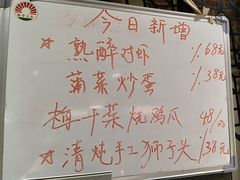 今日新增
* 熟醉对虾 1.68元
蒲菜炒蛋 1.38元
梅干菜烧鸡爪 48/
* 清炖手工狮子头 1.38元